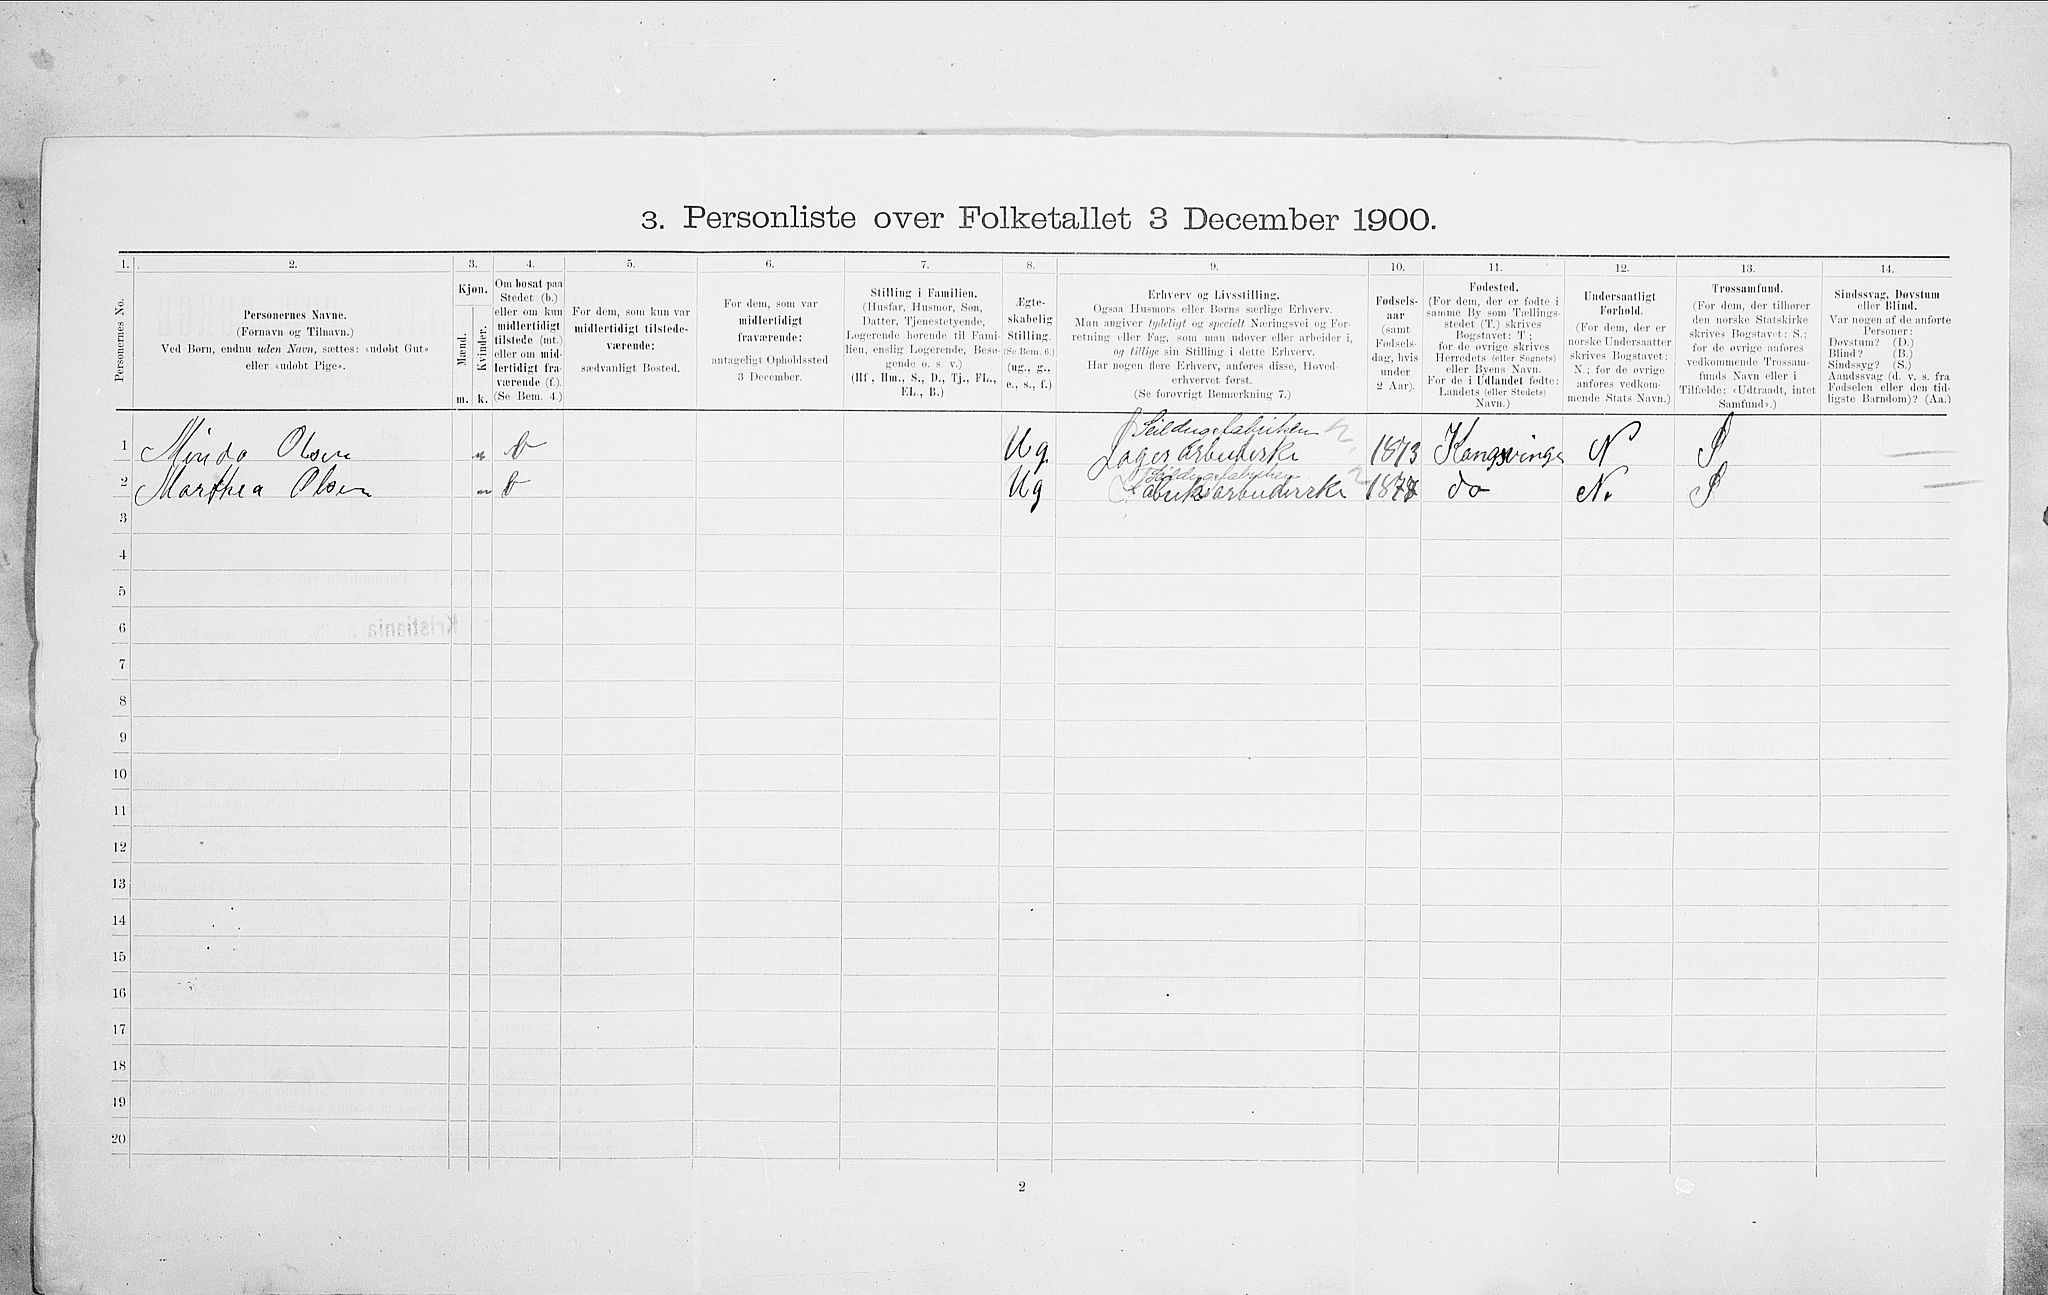 3. Personliste over Folketallet 3 December 1900.
1. 2. 3. 4. 5. 6. 7. 8. 9. 10. 11. 12. 13. 14.
Personernes No.
Personernes Navne.
(Fornavn og Tilnavn.)
Ved Børn, endnu uden Navn, sættes: «udøbt Gut»
eller «udøbt Pige».
Kjøn.
Mænd.
Kvinder.
m. k.
Om bosat paa
Stedet (b.)
eller om kun
midlertidigt
tilstede (mt.)
eller om mid-
lertidigt fra-
værende (f.).
(Se Bem. 4.)
For dem, som kun var
midlertidigt tilstede-
værende:
sædvanligt Bosted.
For dem, som var
midlertidigt
fraværende:
antageligt Opholdssted
3 December.
Stilling i Familien.
(Husfar, Husmor, Søn,
Datter, Tjenestetyende,
Logerende hørende til Fami-
lien, enslig Logerende, Besø-
gende o. s. v.)
(Hf, Hm., S., D., Tj., FL.,
EL., B.)
Ægte-
skabelig
Stilling.
(Se Bem. 6.)
(ug., g.,
e., s., f.)
Erhverv og Livsstilling.
Ogsaa Husmors eller Børns særlige Erhverv.
Man angiver tydeligt og specielt Næringsvei og For-
retning eller Fag, som man udøver eller arbeider i,
og tillige sin Stilling i dette Erhverv.
Har nogen flere Erhverv, anføres disse, Hoved-
erhvervet først.
(Se forøvrigt Bemærkning 7.)
Fødsels-
aar
(samt
Fødsels-
dag, hvis
under
2 Aar).
Fødested.
(For dem, der er fødte i
samme By som Tællings-
stedet (T.) skrives
Bogstavet: T.;
for de øvrige skrives
Herredets (eller Sognets)
eller Byens Navn.
For de i Udlandet fødte:
Landets (eller Stedets)
Navn.)
Undersaatligt
Forhold.
(For dem, der er
norske Undersaatter
skrives Bogstavet:
N.; for de øvrige
anføres vedkom-
mende Stats Navn.)
Trossamfund.
(For dem, der tilhører
den norske Statskirke
skrives Bogstavet: S.;
for de øvrige anføres
vedkommende Trossam-
funds Navn eller i
Tilfælde: «Udtraadt, intet
Samfund».)
Sindssvag, Døvstum
eller Blind.
Var nogen af de anførte
Personer:
Døvstum? (D.)
Blind? (B.)
Sindssyg? (S.)
Aandssvag (d. v. s. fra
Fødselen eller den tid-
ligste Barndom)? (Aa.)
Seildugsfabriken
1 Minda Olsen b Ug Lagerarbeiderske 1873 Kongsvinger N S
Seildugsfabriken
2 Marthea Olsen b Ug Fabriksarbeiderske 1878 do N. S
3
4
5
6
Kristiania
7
8
9
10
11
12
13
14
15
16
17
18
19
20
2